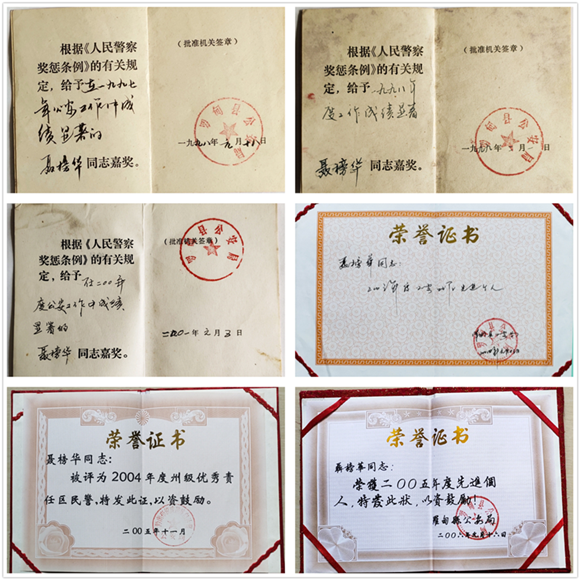 根据《人民警察
奖惩条例》的有关规
定，给予在一九九七
年公安工作中成
绩显著的
聂榜华同志嘉奖。
（批准机关签章）
罗甸县公安局
一九九八年元月十八日
根据《人民警察
奖惩条例》的有关规
定，给予一九九八年
度工作成绩显著
聂榜华同志嘉奖。
（批准机关签章）
罗甸县公安局
一九九八年 月 日
根据《人民警察
奖惩条例》的有关规
定，给予在二00年
度公安工作中成绩
显著的
聂榜华同志嘉奖。
（批准机关签章）
二〇〇一年元月3日
荣誉证书
聂榜华同志：
荣誉证书
聂榜华同志：
被评为2004年度州级优秀责
任区民警，特发此证，以资鼓励。
二00五年十一月
荣誉证书
聂榜華同志：
荣獲二00五年度先進個
人，特发此狀，以資鼓勵！
羅甸縣公安局
二00六年元月十六日